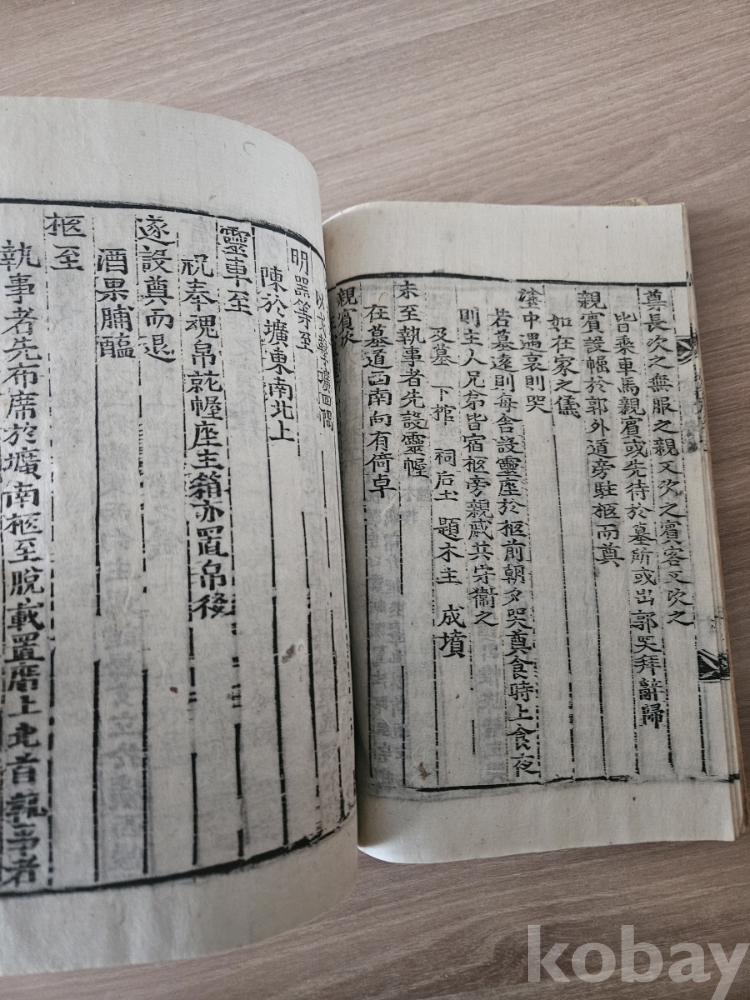 尊長次之無服之親又次之賓客又次之
皆乘車馬親賓或先待於墓所或出郭哭拜辭歸
親賓設幄於郭外道旁駐柩而奠
如在家之儀
塗中遇哀則哭
若墓遠則每舍設靈座於柩前朝夕哭奠食時上食夜
則主人兄弟皆宿柩旁親戚共守衞之
及墓 下棺 祠后土 題木主 成墳
未至執事者先設靈幄
在墓道西南向有倚卓
親賓次
明器等至
陳於壙東南北上
靈車至
祝奉魂帛就幄座主箱亦置帛後
遂設奠而退
酒果脯醢
柩至
執事者先布席於壙南柩至脫載置席上北首執事者
kobay